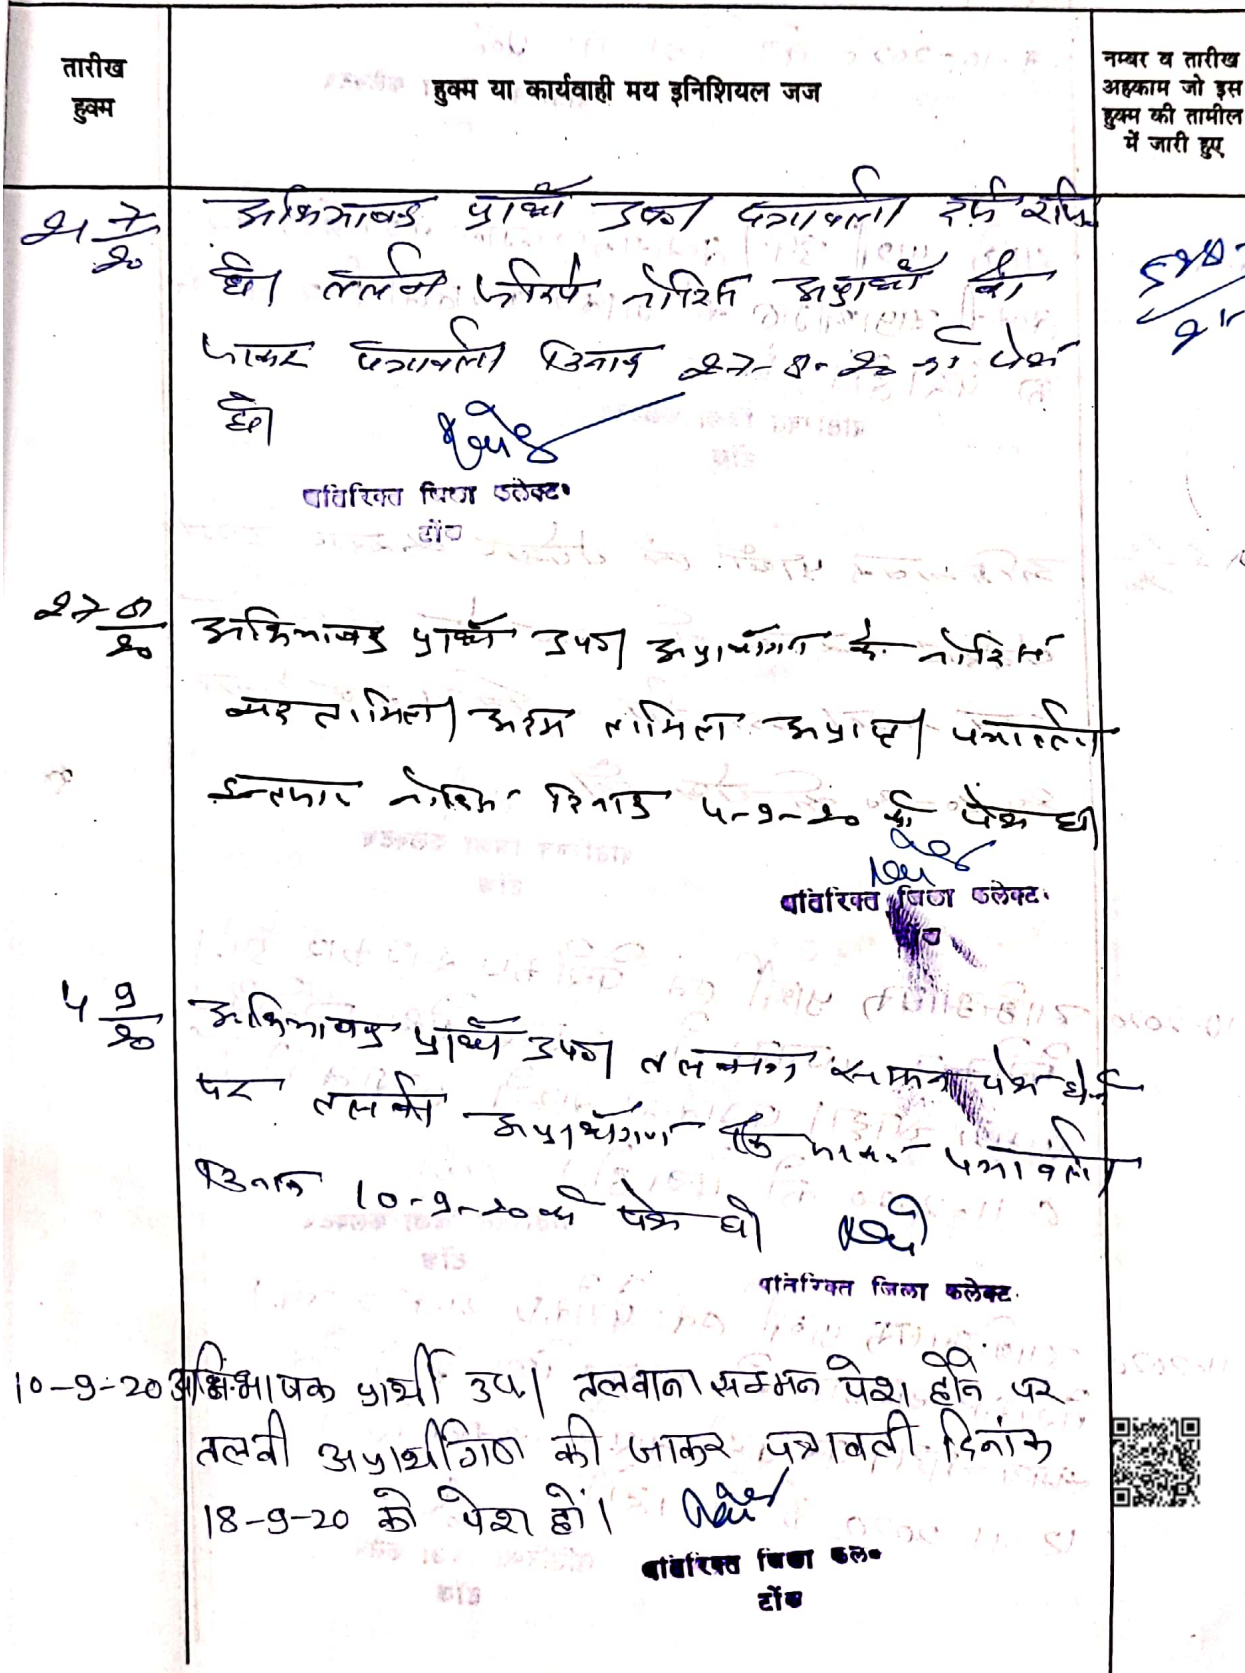 तारीख
हुक्म
हुक्म या कार्यवाही मय इनिशियल जज
नम्बर व तारीख
अहकाम जो इस
हुक्म की तामील
में जारी हुए
21 7/20
अभिभाषक प्रार्थी उप0। पत्रावली दर्ज रजि0
हो। तलबी जरिये नोटिस अप्रार्थी की
जाकर पत्रावली दिनांक 27-8-20 को पेश
हो।
अतिरिक्त जिला कलेक्टर
टोंक
27 8/20
अभिभाषक प्रार्थी उप0। अप्रार्थीगण के नोटिस
बाद तामिल। अदम तामिल अप्राप्त। पत्रावली
इन्तजार नोटिस दिनांक 4-9-20 को पेश हो।
अतिरिक्त जिला कलेक्टर
टोंक
4 9/20
अभिभाषक प्रार्थी उप0। तलबाना सम्मन पेश होने
पर तलबी अप्रार्थीगण की जाकर पत्रावली
दिनांक 10-9-20 को पेश हो।
अतिरिक्त जिला कलेक्टर
10-9-20 अभिभाषक प्रार्थी उप.। तलबाना सम्मन पेश होने पर
तलबी अप्रार्थीगण की जाकर पत्रावली दिनांक
18-9-20 को पेश हो।
अतिरिक्त जिला कल०
टोंक